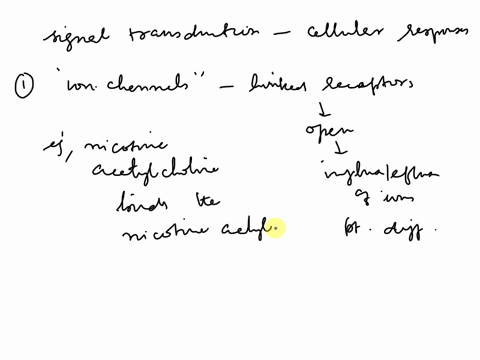 signal transduction — cellular responses
① "ion channels" — linked receptors
↓
open
↓
eg, nicotine
acetylcholine
influx/efflux
of ions
binds the
nicotine acetyl.
pt. diff.